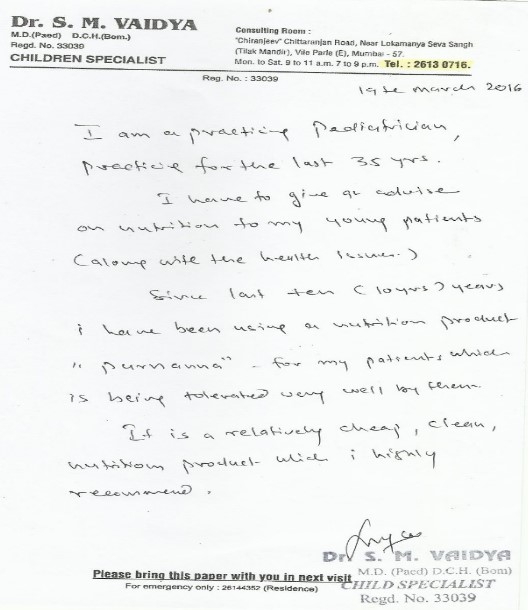 Dr. S. M. VAIDYA
M.D.(Paed) D.C.H.(Bom.)
Regd. No. 33039
CHILDREN SPECIALIST
Consulting Room :
"Chiranjeev" Chittaranjan Road, Near Lokamanya Seva Sangh
(Tilak Mandir), Vile Parle (E), Mumbai - 57.
Mon. to Sat. 9 to 11 a.m. 7 to 9 p.m. Tel. : 2613 0716.
Reg. No. : 33039
19te march 2016
I am a practicing Pediatrician,
practicing for the last 35 yrs.
I have to give an advise
on nutrition to my young patients
(along with the health issues.)
Since last ten (10yrs) years
i have been using a nutrition product
"purnanna" - for my patients which
is being tolerated very well by them.
It is a relatively cheap, clean,
nutritious product which i highly
recommend.
Dr. S. M. VAIDYA
M.D. (Paed) D.C.H. (Bom)
CHILD SPECIALIST
Regd. No. 33039
Please bring this paper with you in next visit
For emergency only : 26144352 (Residence)